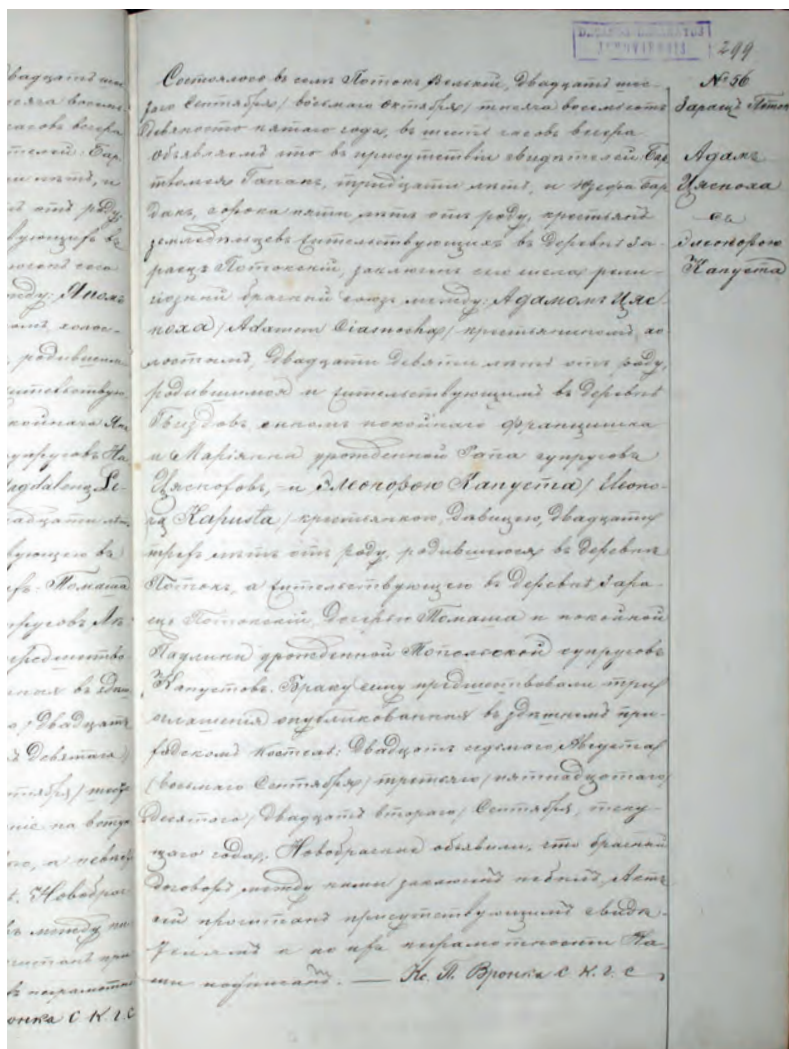 299
№ 56
Зарацъ Поток
Адамъ
Цяспоха
съ
Элеонорою
Капуста
Состоялось въ селѣ Потокъ Вельkій, двадцать шес-
таго Сентября / восьмаго Октября / тысяча восемьсотъ
девяносто пятаго года, въ шесть часовъ вечера
Объявляемъ что въ присутствіи свидѣтелей Бар
тломея Гапанъ, тридцати лѣтъ, и Юзефа Бар
данъ, сорока пяти лѣтъ отъ роду, крестьянъ
земледѣльцевъ жительствующихъ въ деревнѣ За-
рацъ Потокскій, заключенъ сего числа рели-
гіозный брачный союзъ между: Адамомъ Цяс
поха / Adamem Ciasnocha / крестьяниномъ, хо
лостымъ, двадцати девяти лѣтъ отъ роду,
родившимся и жительствующимъ въ деревнѣ
Гвиздовъ сыномъ покойнаго Францишка
и Маріянны урожденной Сапа супруговъ
Цяспоховъ, - и Элеонорою Капуста / Eleono-
rą Kapusta / крестьянкою, дѣвицею, двадцати
трехъ лѣтъ отъ роду, родившеюся въ деревнѣ
Потокъ, а жительствующею въ деревнѣ Зара-
цъ Потокскій, дочерью Томаша и покойной
Паулины урожденной Топольской супруговъ
Капустовъ. Браку сему предшествовали три
оглашенія опубликованныя въ здѣшнемъ при-
ходскомъ костелѣ: двадцать седьмаго Августа
(восьмаго Сентября) третьяго / пятнадцатаго /
десятаго / двадцать втораго / Сентября, теку-
щаго года. Новобрачные объявили, что брачный
договоръ между ними заключенъ небылъ. Актъ
сей прочитанъ присутствующимъ свидѣ-
телямъ и по ихъ неграмотности На-
ми подписанъ. — Кс. П. Вронка С. К. г. С